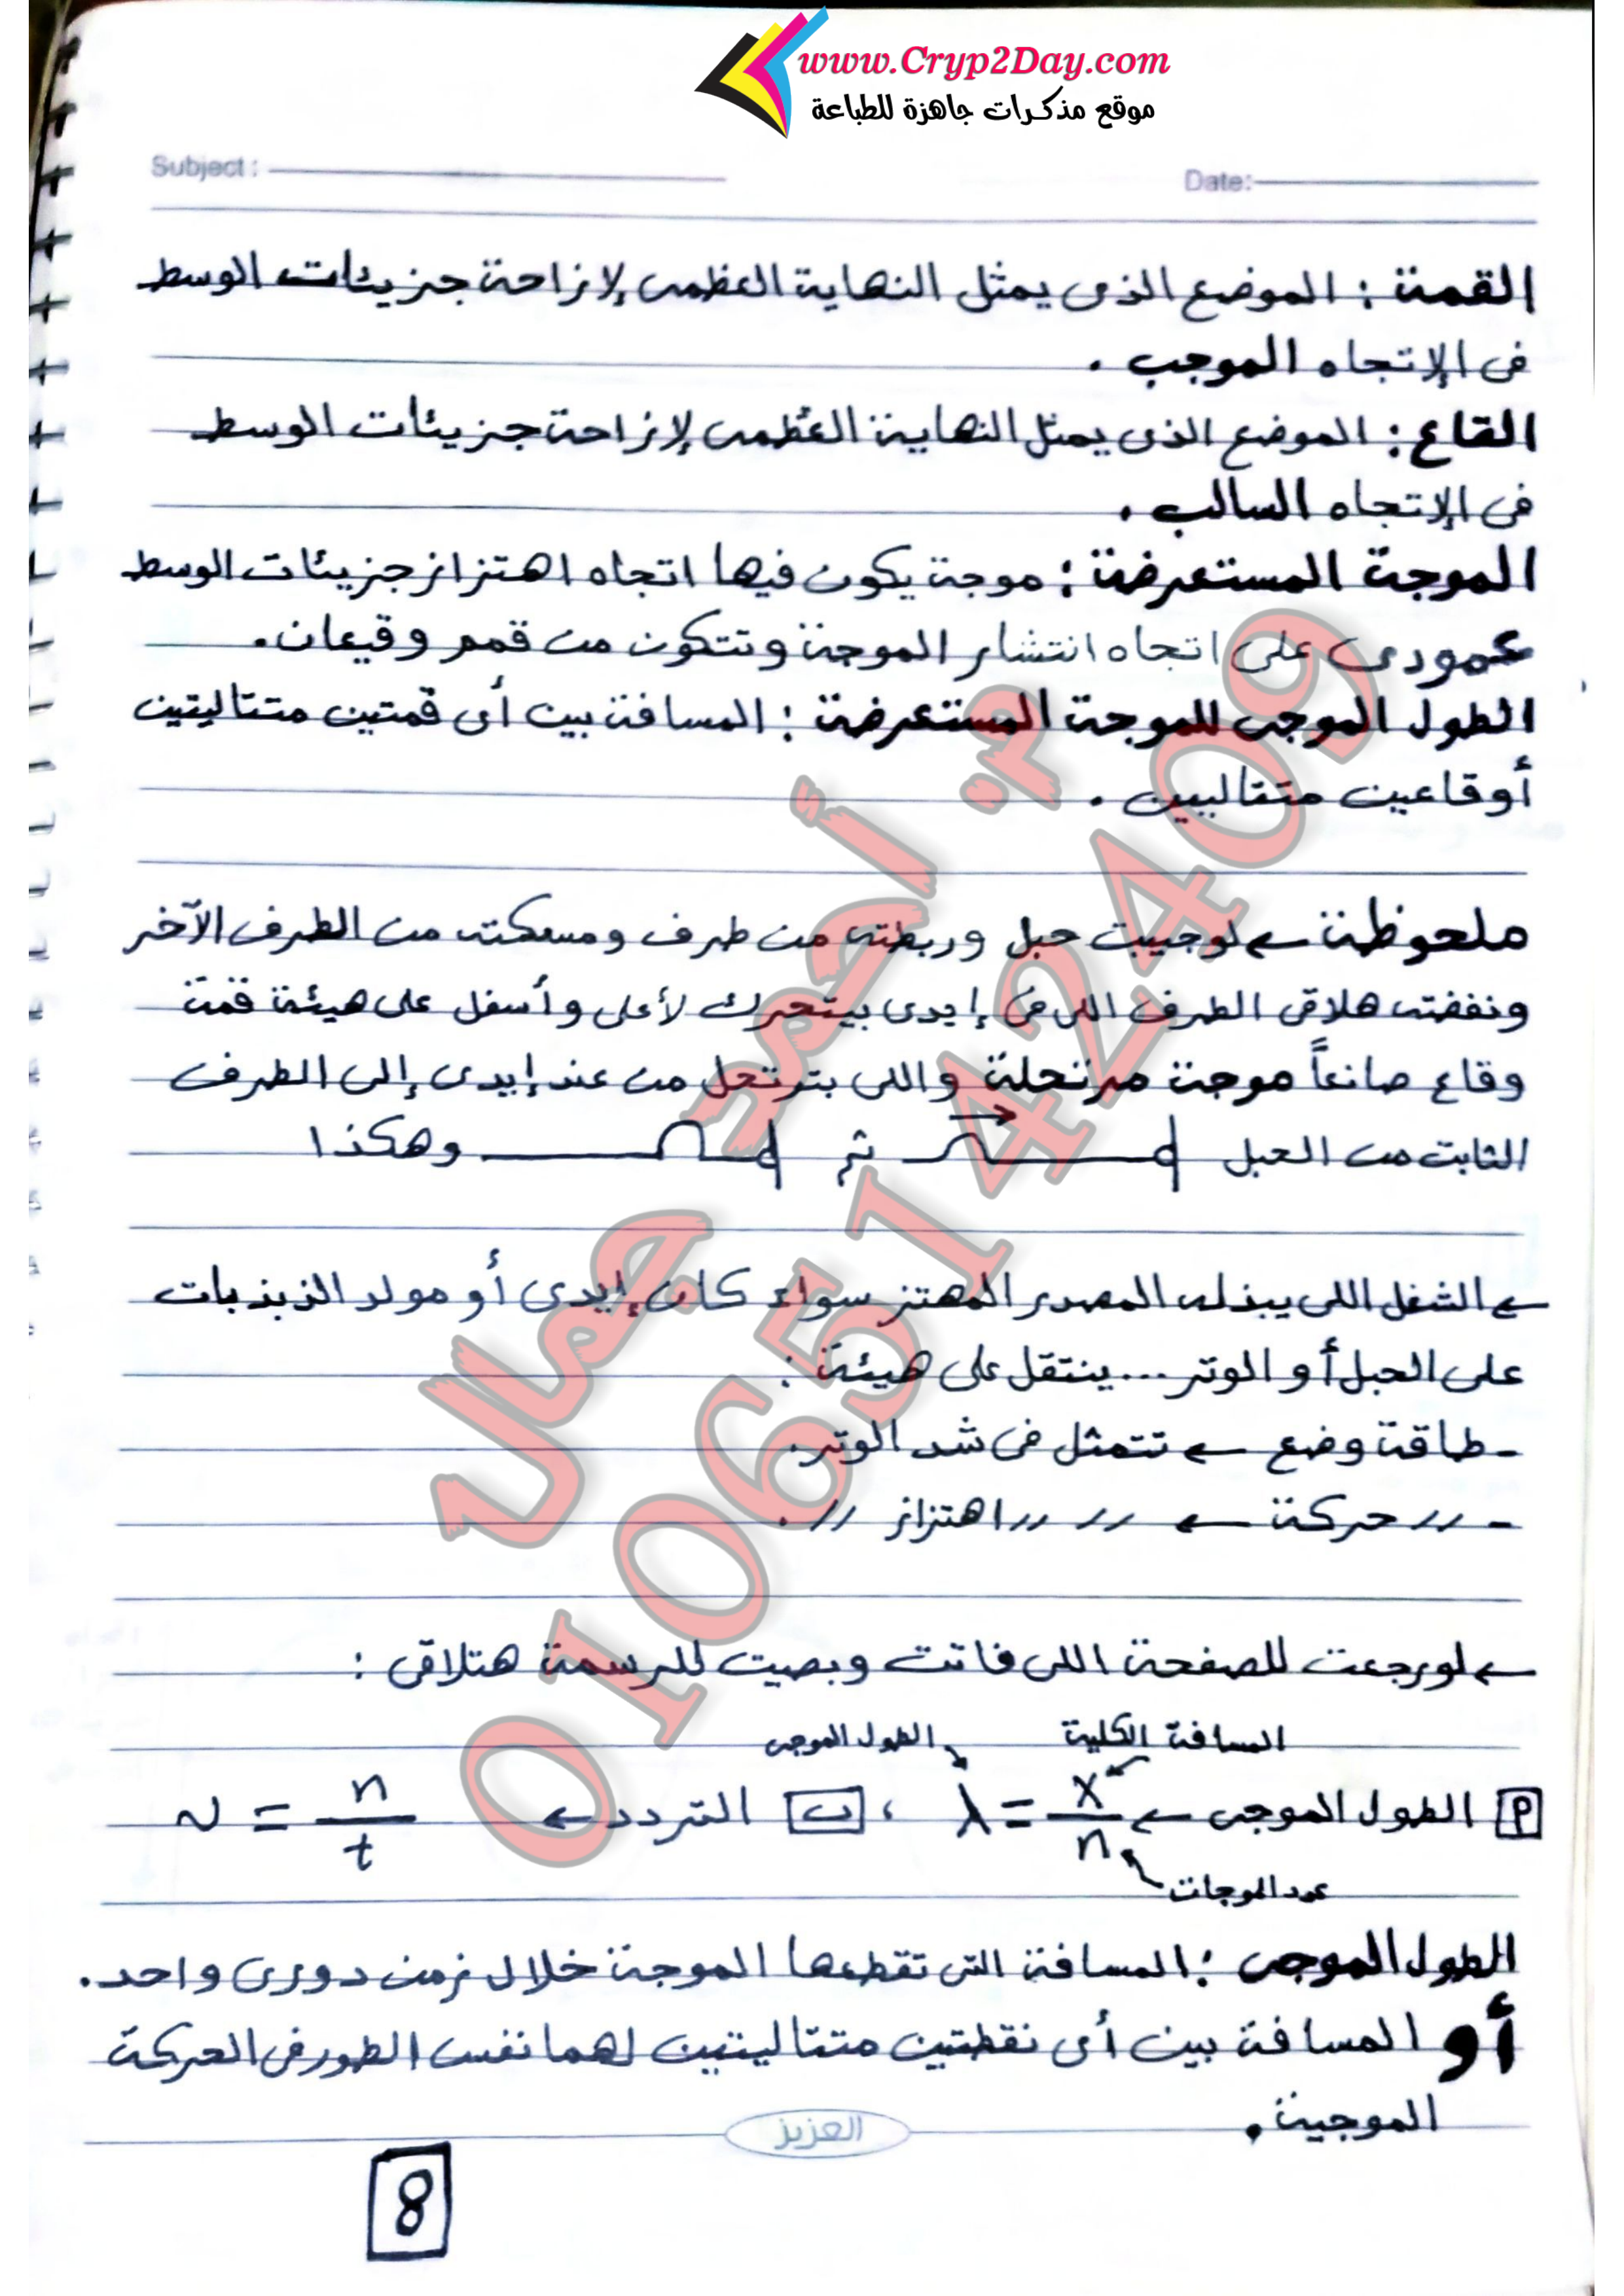 www.Cryp2Day.com
موقع مذكرات جاهزة للطباعة
Subject :
Date:
القمة : الموضع الذى يمثل النهاية العظمى لإزاحة جزيئات الوسط
فى الإتجاه الموجب .
القاع : الموضع الذى يمثل النهاية العُظمى لإزاحة جزيئات الوسط
فى الإتجاه السالب .
الموجة المستعرضة : موجة يكون فيها اتجاه اهتزاز جزيئات الوسط
عمودى على اتجاه انتشار الموجة وتتكون من قمم وقيعان .
الطول الموجى للموجة المستعرضة : المسافة بين أى قمتين متتاليتين
أو قاعين متتاليين .
ملحوظة ← لو جيبت حبل وربطته من طرف ومسكته من الطرف الآخر
ونفضته هلاقى الطرف اللى فى إيدى بيتحرك لأعلى وأسفل على هيئة قمة
وقاع صانعاً موجة مرتحلة واللى بترتحل من عند إيدى إلى الطرف
الثابت من الحبل ثم وهكذا
← الشغل اللى يبذله المصدر المهتز سواء كان إيدى أو مولد الذبذبات
على الحبل أو الوتر ... ينتقل على هيئة :
- طاقة وضع ← تتمثل فى شد الوتر .
- // حركة ← // // اهتزاز // .
← لو رجعت للصفحة اللى فاتت وبصيت للرسمة هتلاقى :
الطول الموجى المسافة الكلية
أ الطول الموجى ← λ = x/n ، ب التردد ← ν = n/t
عدد الموجات
الطول الموجى : المسافة التى تقطعها الموجة خلال زمن دورى واحد .
أو المسافة بين أى نقطتين متتاليتين لهما نفس الطور فى الحركة
الموجية .
العزيز
8
م. أحمد جمال
01065142409